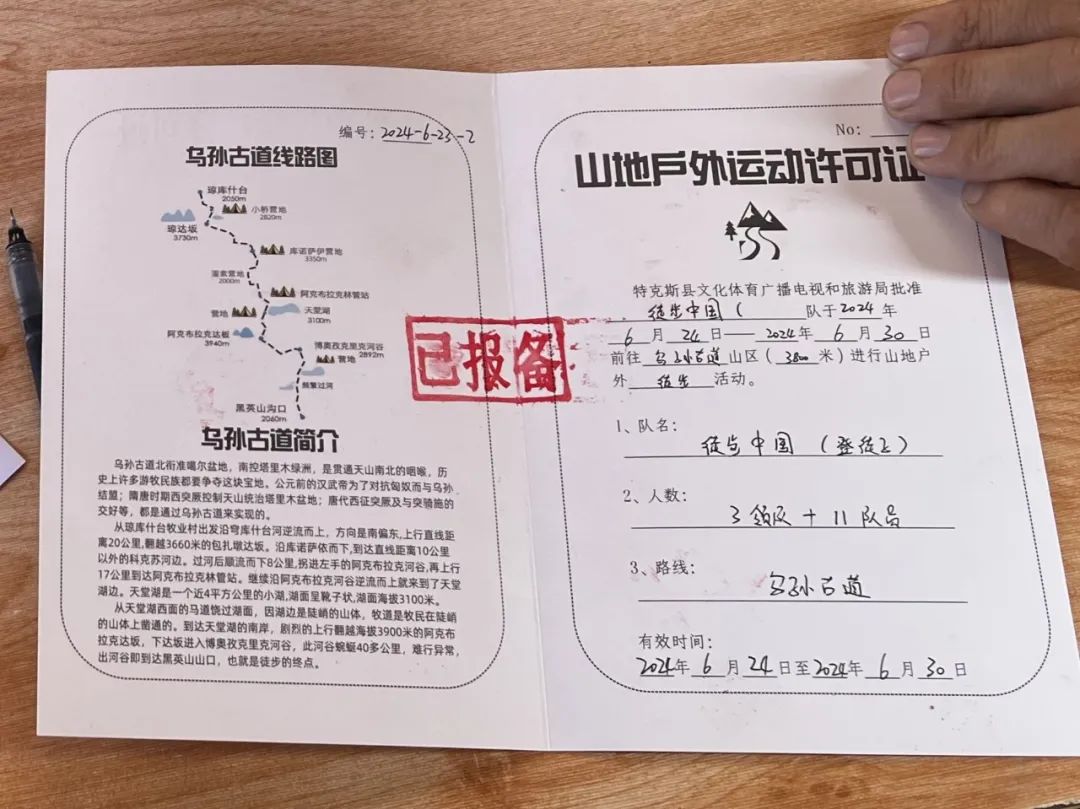 编号：2024-6-23-2
乌孙古道线路图
琼库什台
2050m
小桥营地
2820m
琼达坂
3730m
库诺萨伊营地
3350m
营地
2000m
阿克布拉克林管站
天堂湖
3100m
营地
阿克布拉克达板
3940m
博奥孜克里克河谷
2892m
营地
频繁过河
黑英山沟口
2060m
乌孙古道简介
乌孙古道北衔准噶尔盆地，南控塔里木绿洲，是贯通天山南北的咽喉，历
史上许多游牧民族都要争夺这块宝地。公元前的汉武帝为了对抗匈奴而与乌孙
结盟；隋唐时期西突厥控制天山统治塔里木盆地；唐代西征突厥及与突骑施的
交好等，都是通过乌孙古道来实现的。
从琼库什台牧业村出发沿穹库什台河逆流而上，方向是南偏东,上行直线距
离20公里,翻越3660米的包扎墩达坂。沿库诺萨依而下,到达直线距离10公里
以外的科克苏河边。过河后顺流而下8公里,拐进左手的阿克布拉克河谷,再上行
17公里到达阿克布拉克林管站。继续沿阿克布拉克河谷逆流而上就来到了天堂
湖边。天堂湖是一个近4平方公里的小湖,湖面呈靴子状,湖面海拔3100米。
从天堂湖西面的马道饶过湖面，因湖边是陡峭的山体，牧道是牧民在陡峭
的山体上凿通的。到达天堂湖的南岸，剧烈的上行翻越海拔3900米的阿克布
拉克达坂，下达坂进入博奥孜克里克河谷，此河谷蜿蜒40多公里，难行异常，
出河谷即到达黑英山山口，也就是徒步的终点。
已报备
No：
山地戶外运动许可证
特克斯县文化体育广播电视和旅游局批准
徒步中国（ 队于2024年
6月24日——2024年6月30日
前往乌孙古道山区（3800米）进行山地户
外徒步活动。
1、队名：
徒步中国（登徒工）
2、人数：
3领队+11队员
3、路线：
乌孙古道
有效时间：
2024年6月24日至2024年6月30日